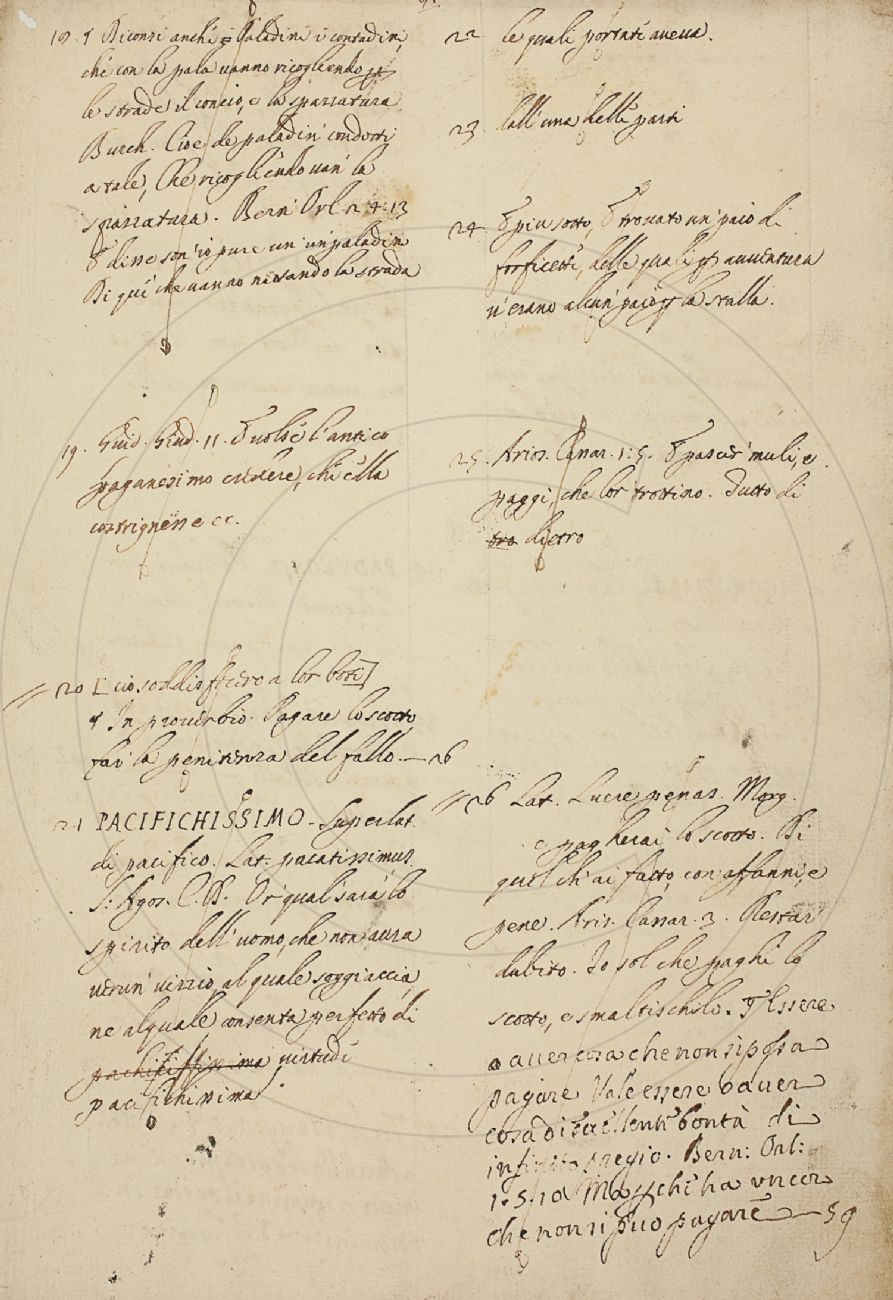 19. ¶ Diconsi anche Paladini i contadini,
che con la pala vanno ricogliendo p
le strade il concio, e la spazzatura
Burch. Cioè de paladin' condotti
a tale, Che ricogliendo van' la
spazzatura. Bern. Orl. 2. 4. 13
E disse son' io pure un' paladino
Di que' che vanno nettando la strada
19. Guid. Giud. 11. E volse l'antico
paganesimo credere, che ella
costrignesse ec.
20 [cio soddisfecero a lor boti]
¶ In proverbio. Pagare lo scotto
far la penitenza del fallo. — 26
21 PACIFICHISSIMO. Superlat.
di pacifico. Lat. pacatissimus
S. Agos. C. D. Or qual' sarà lo
spirito dell' uomo, che non avra
verun' vizio, al quale soggiaccia,
ne al quale consenta perfetto di
pachifissima virtudi
pacifichissima.
22 le quali portate aveva.
23. dall' una delle parti
24. E piu sotto, E trovato un' paio di
forficette, delle quali p avventura
n' erano alcun' paio p la stalla.
25. Arios. Cassar. 1. 5. E pascer' muli, e
paggi, che lor trottino. Dutto di
tro dietro
26 Lat. Luere penas. Morg.
e pagherai lo scotto. Di
quel ch' ai fatto, con affanni, e
pene. Ario. Cassar. 3. Restar
dubito. Io sol che paghi lo
scotto, e smaltischilo. ¶ Essere
o aver cosa che non si possa
pagare Vale essere o aver
cosa di eccellente bontà di
infinito pregio. Bern: Orl:
1. 5. 10 Ma p che ha un cor
che non si può pagare — 59